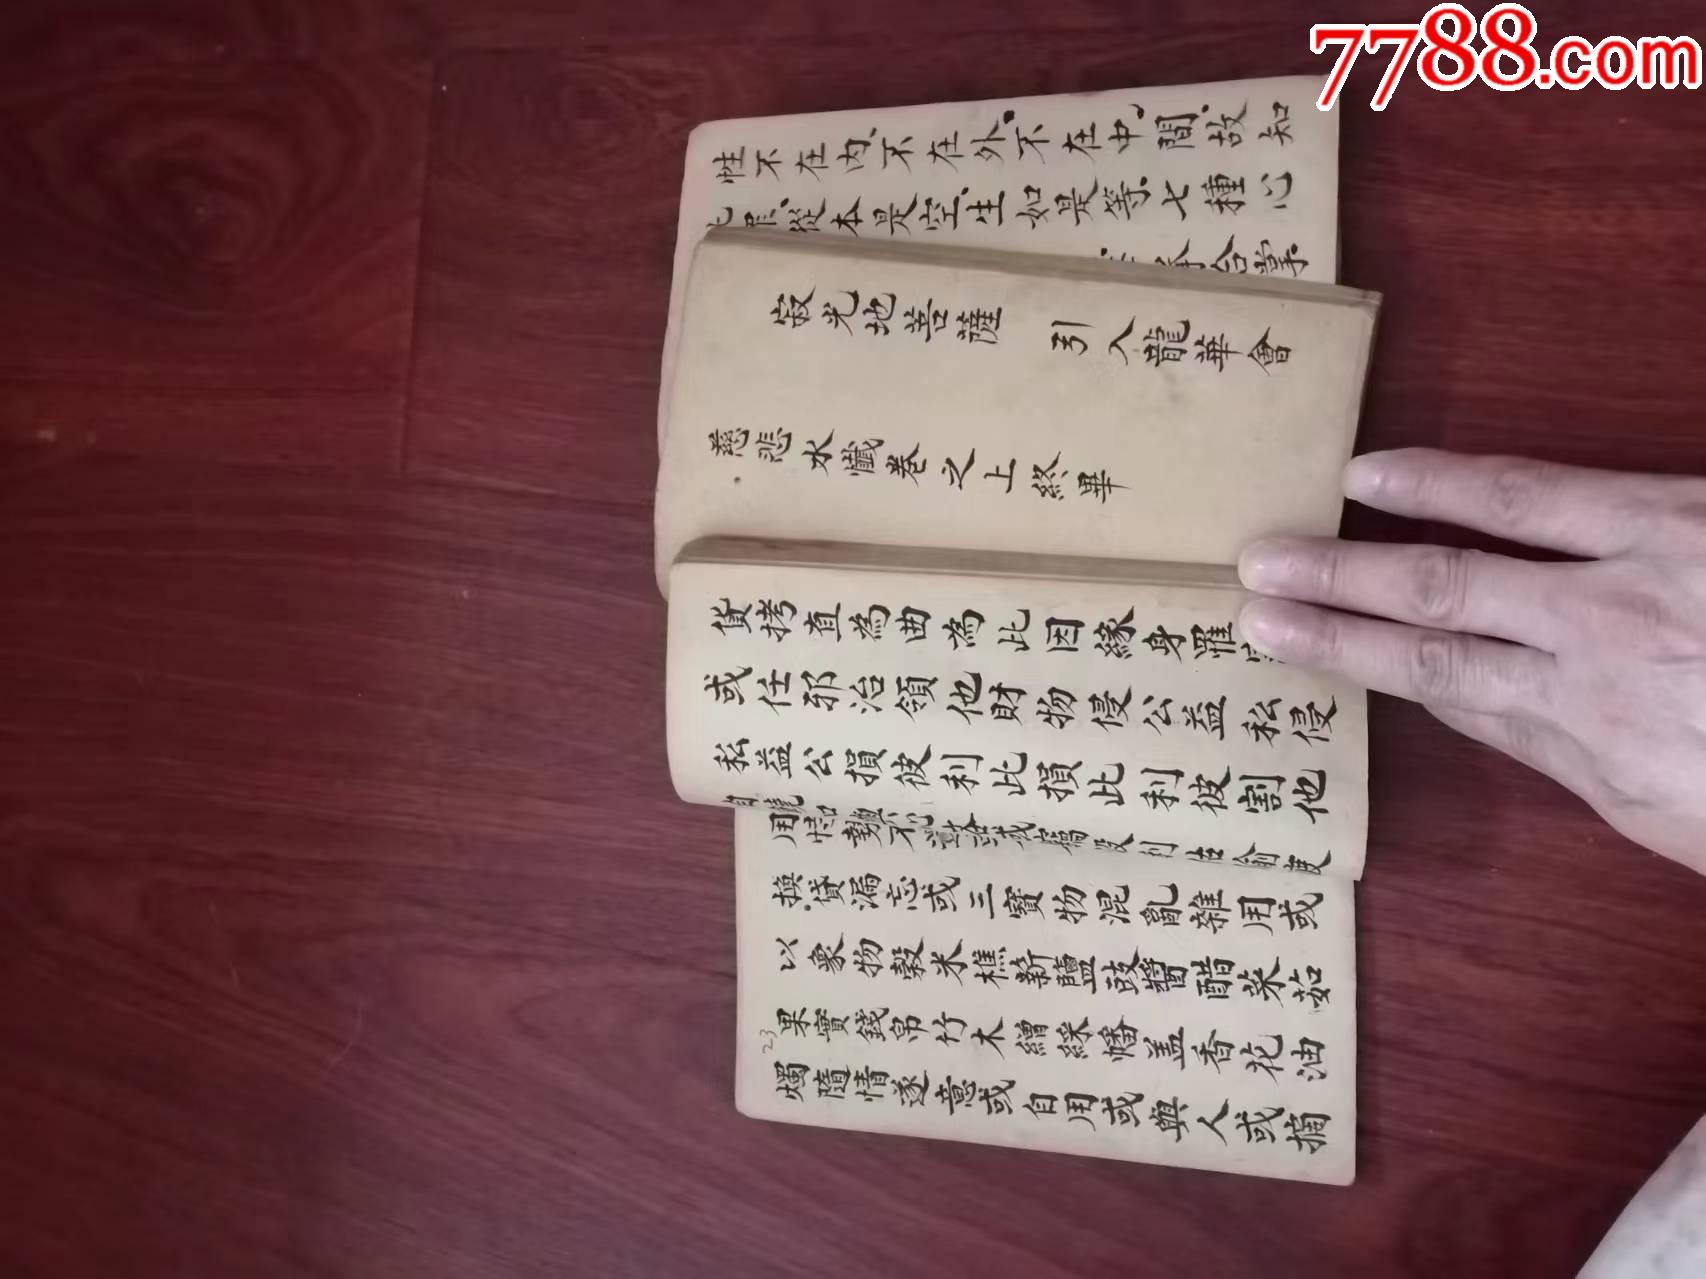 性不在内、不在外、不在中、間、故知
從本是空、生如是等、七種心
合掌、
寂光地菩薩 引入龍華會
慈悲水懺卷之上終畢
貨拷直為曲為此因緣身罹
或任邪治領他財物侵公益私侵
私益公損彼利此損此利彼割他
換貸漏忘或三寶物混亂雜用或
以衆物穀米樵薪鹽豉醬醋菜茹
果實錢帛竹木繒綵幡蓋香花油
23
燭隨情逐意或自用或與人或摘
7788.com